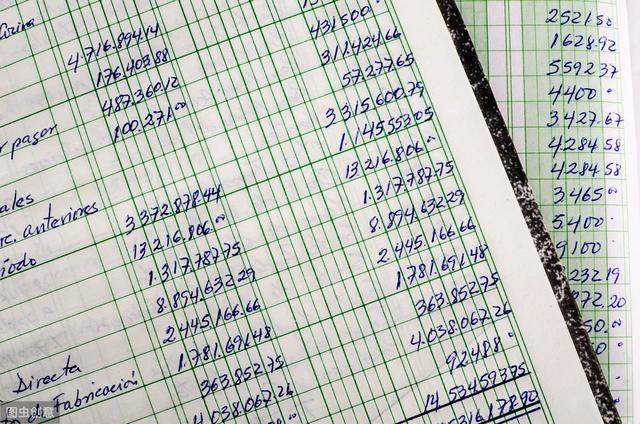 4.716.894.14
176.403.88
487.360.12
100.271.00
pagar
431500.
311.424.66
57.277.65
3.315.600.79
1.145.553.05
ales
anteriores 3.372.878.44
iodo 13.216.806.00
1.317.787.75
8.894.632.29
2.445.166.66
1.781.691.48
Directa 363.852.75
de Fabricación 4.038.067.26
13.216.806.00
1.317.787.75
8.894.632.29
2.445.166.66
1.781.691.48
363.852.75
4.038.067.26
92.488
14.534.593.75
2521.50
1628.92
5592.37
4400
3427.67
4284.58
4284.58
3465.00
5.400
9100
232.19
372.20
50.00
0
图虫创意